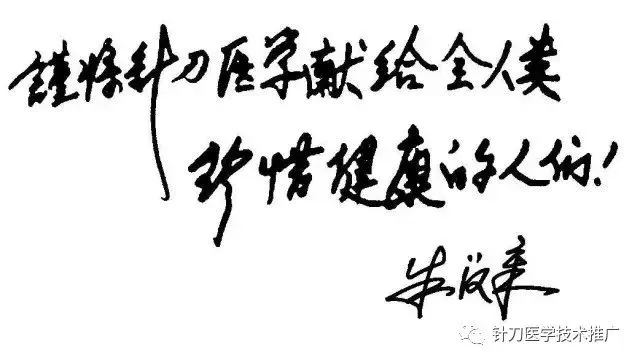 謹将针刀医学献给全人类
珍惜健康的人们!
朱汉章
针刀医学技术推广